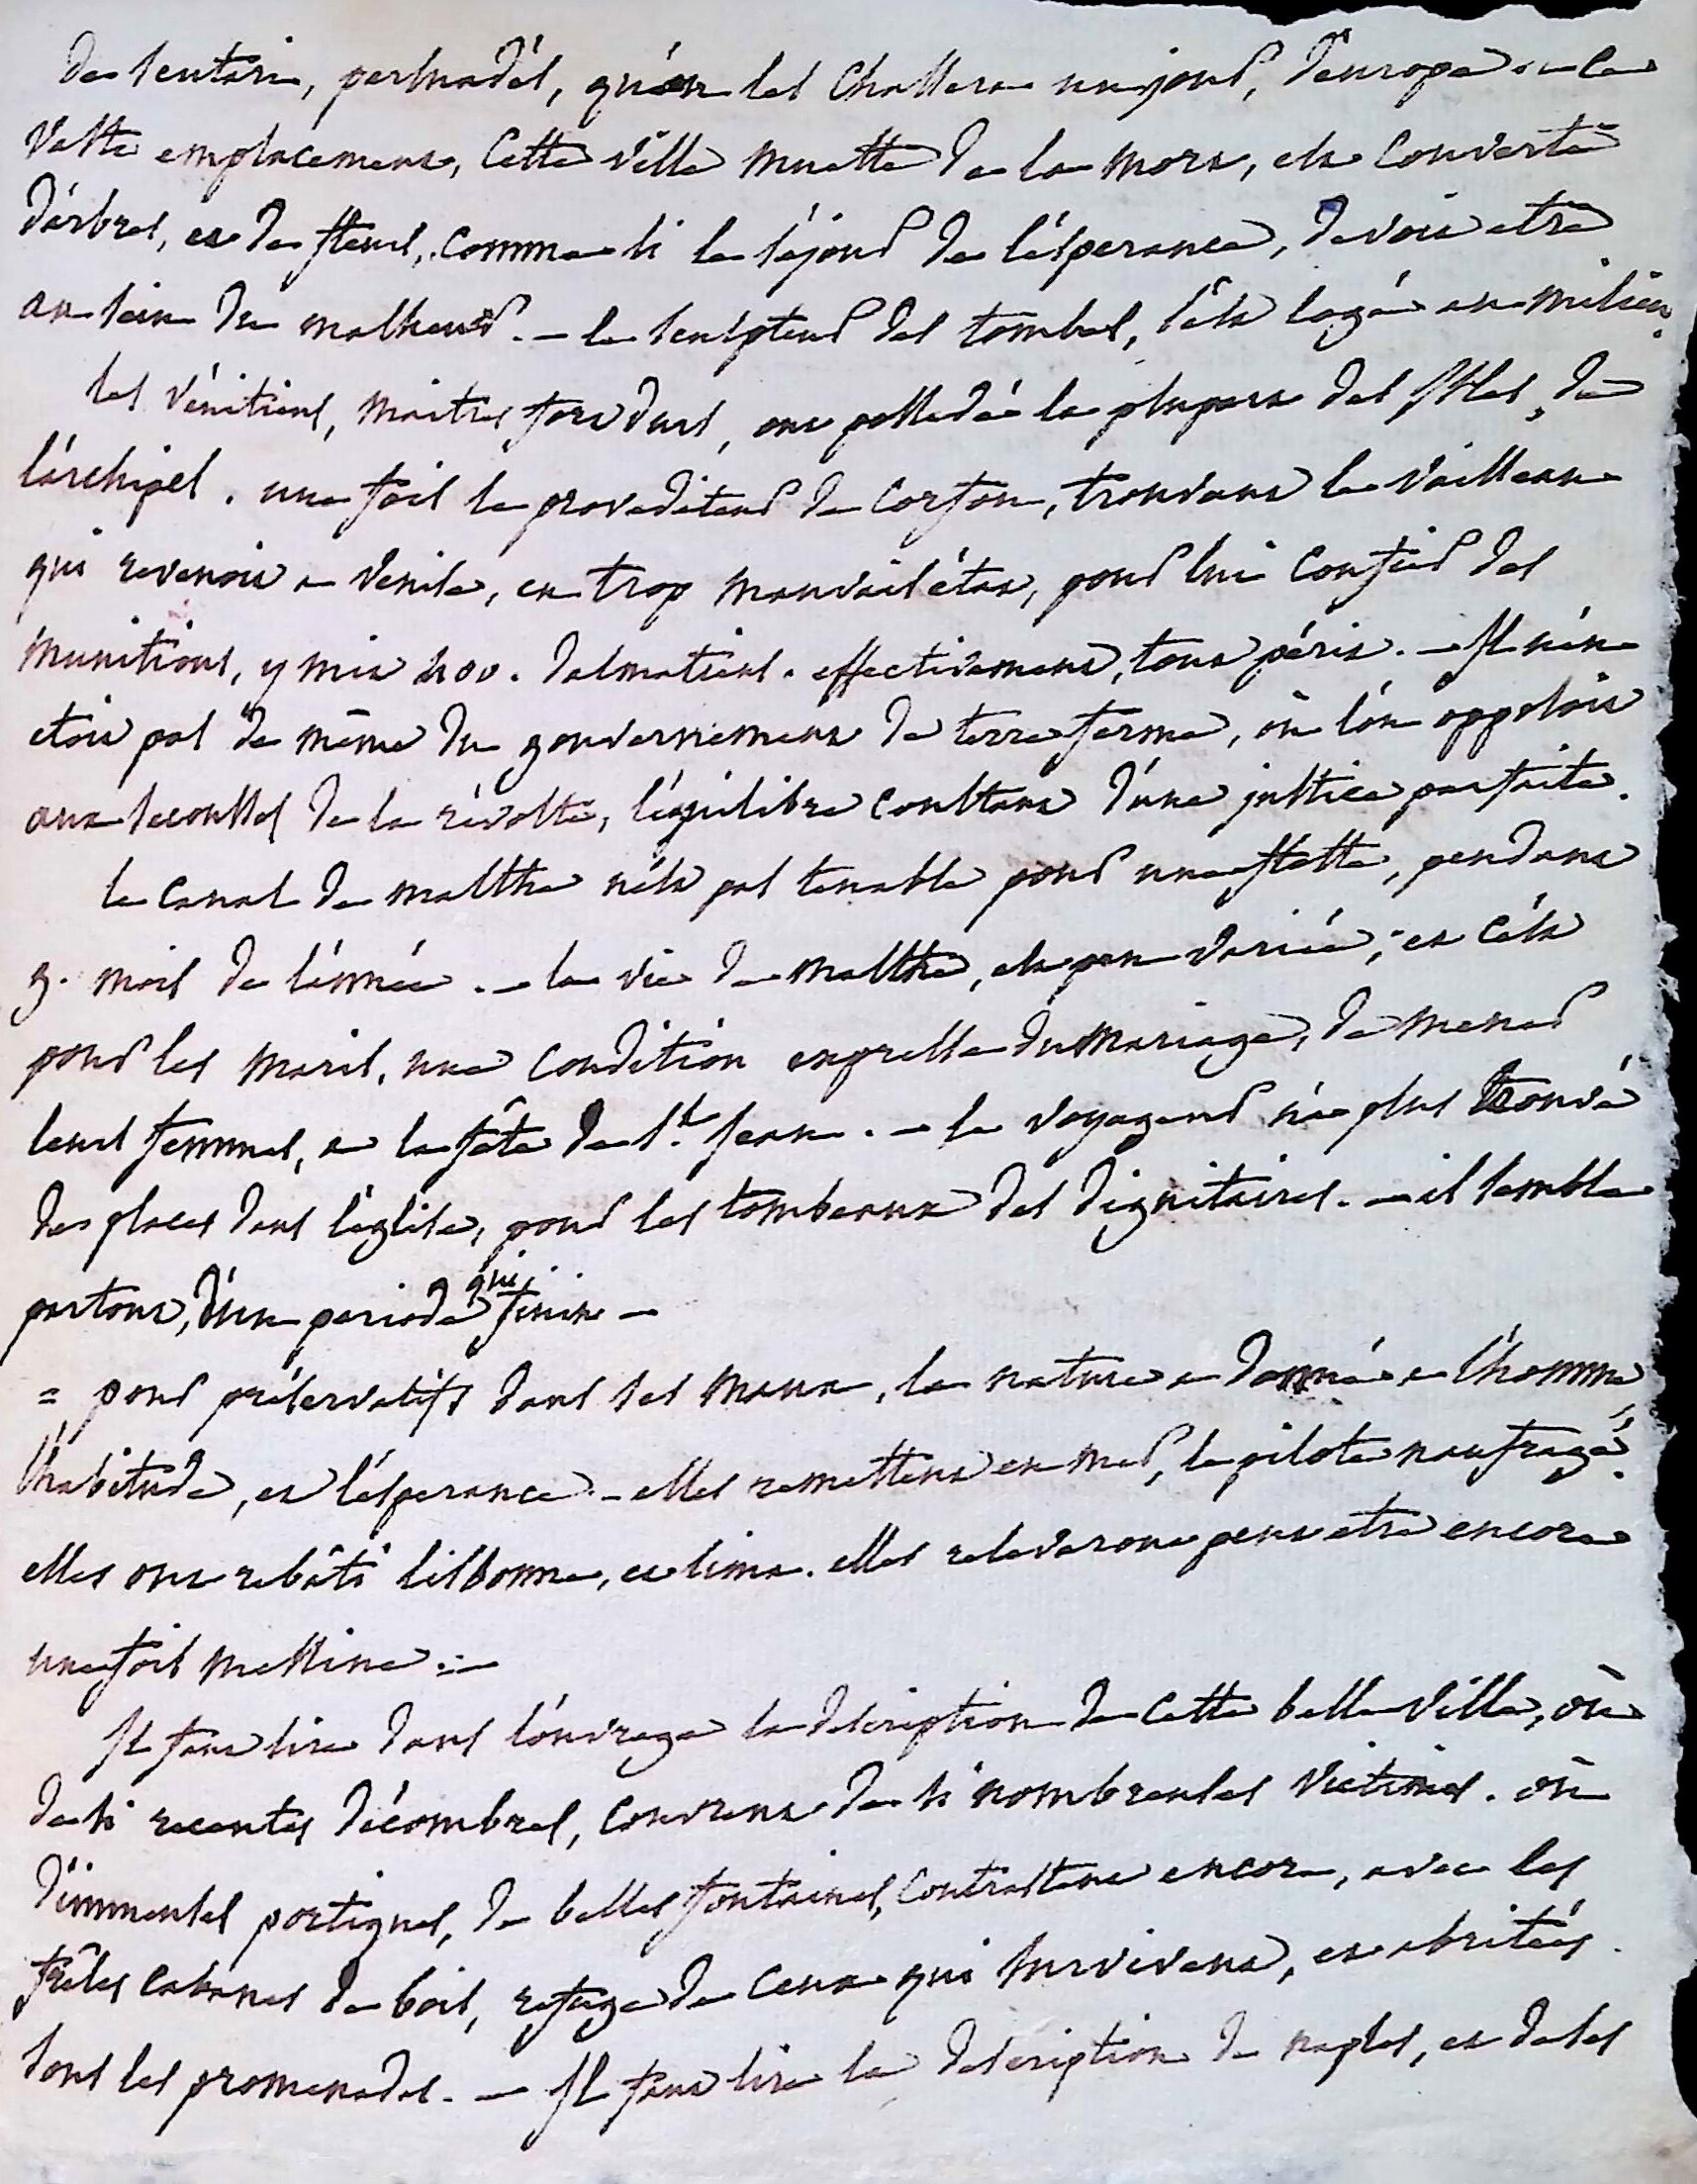 de scutari, persuadés, qu'on les chassera un jour, d'europe. — ce
vaste emplacement, cette ville muette de la mort, est couverte
d'arbres, et de fleurs, comme si le séjour de l'éspérance, devoit etre
au sein du malheur. — le sculpteur des tombes, s'est logé au milieu.
les vénitiens, maitres fort durs, ont possedé la plupart des Isles, de
l'archipel. une fois le provediteur de Corfou, trouvant le vaisseau
qui revenoit a Venise, en trop mauvais état, pour lui confier des
munitions, y mit 400. dalmatiens. effectivement, tout périt. — Il n'en
etoit pas de même du gouvernement de terre ferme, où l'on opposoit
aux secousses de la révolte, l'équilibre constant d'une justice parfaite.
le canal de malthe n'est pas tenable pour une flotte, pendant
9. mois de l'année. — la vie de malthe, est peu variée, et c'est
pour les maris, une condition expresse du mariage, de mener
leurs femmes, a la fête de St. Jean. — le voyageur n'a plus trouvé
de places dans l'église, pour les tombeaux des dignitaires. — il semble
partout, d'un periode qui finit —
= pour préservatifs dans ses maux, la nature a donné a l'homme,
l'habitude, et l'ésperance. — elles remettent en mer, le pilote naufragé.
elles ont rebâti lisbonne, et lima. elles releveront peut etre encore
une fois messine. —
Il faut lire dans l'ouvrage la description de cette belle ville, où
de si recentes décombres, couvrent de si nombreuses victimes. où
d'immenses portiques, de belles fontaines, contrastent encore, avec les
frêles cabanes de bois, refuge de ceux qui survivent, et abritées
sous les promenades. — Il faut lire la description de naples, et de ses